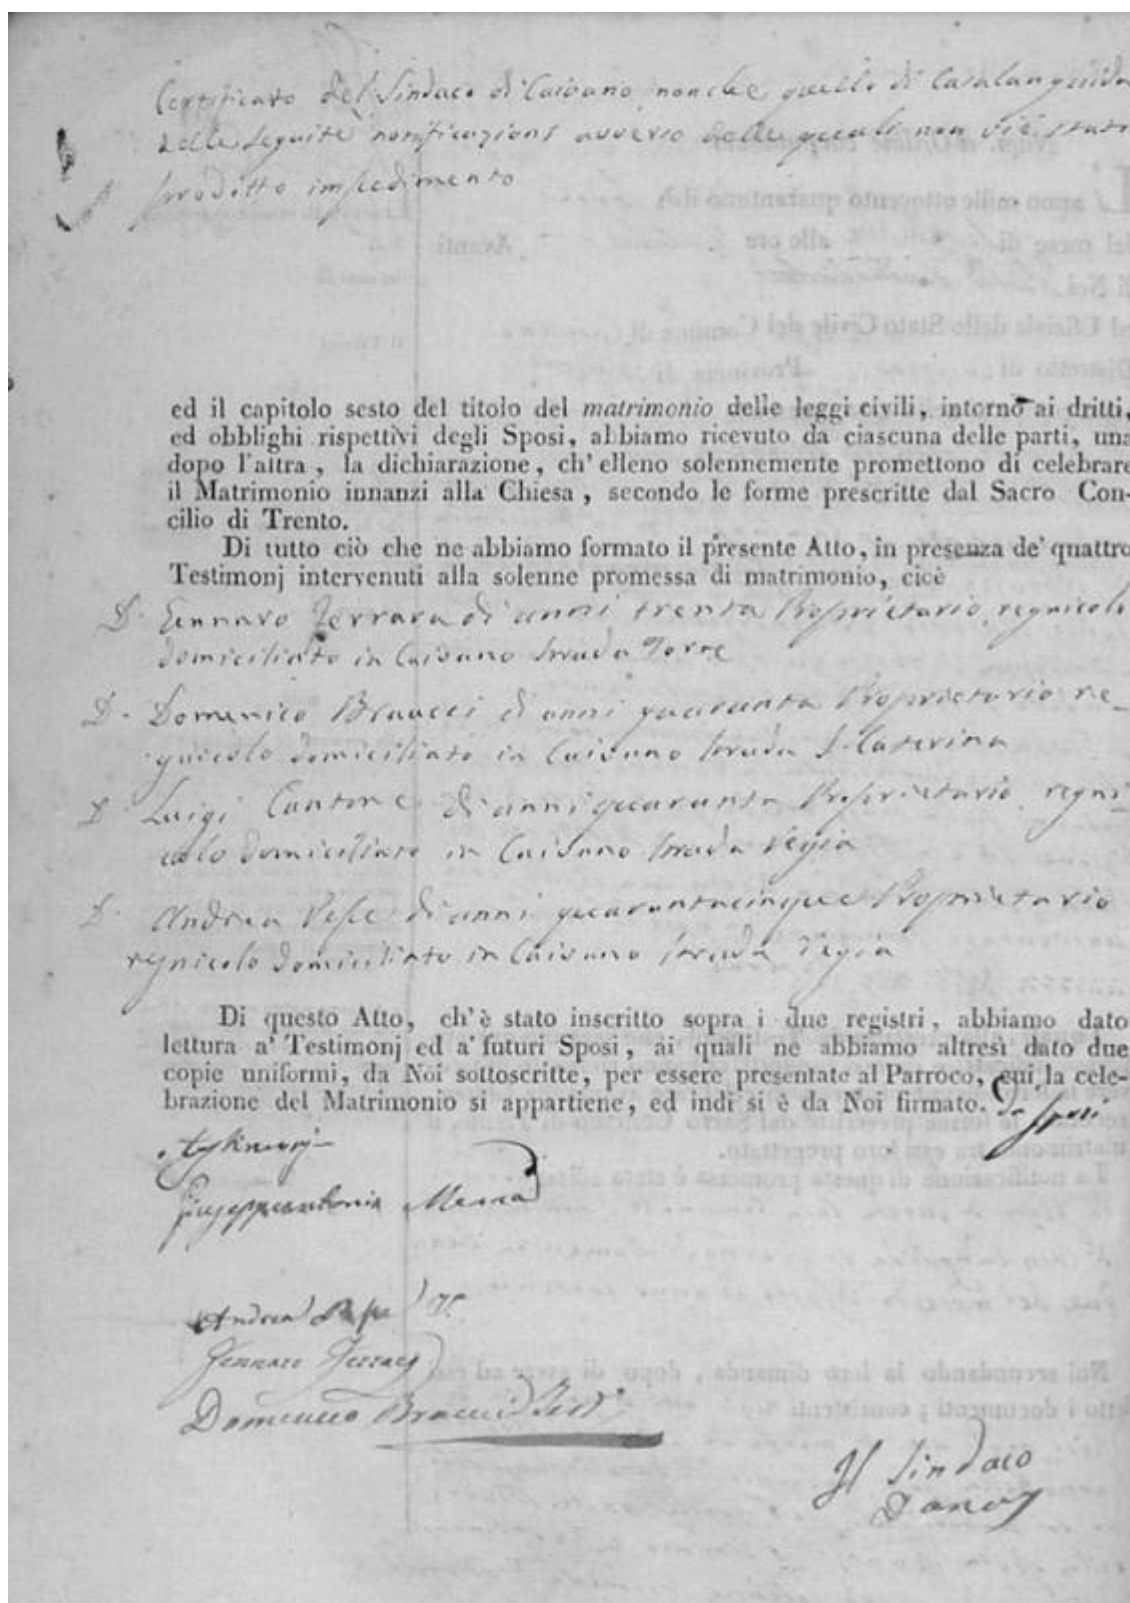 Certificato del Sindaco di Caivano nonche quello di Casalanguida
delle seguite notificazioni avverso delle quali non vi è stato
prodotto impedimento
ed il capitolo sesto del titolo del matrimonio delle leggi civili, intorno ai dritti,
ed obblighi rispettivi degli Sposi, abbiamo ricevuto da ciascuna delle parti, una
dopo l'altra, la dichiarazione, ch' elleno solennemente promettono di celebrare
il Matrimonio innanzi alla Chiesa, secondo le forme prescritte dal Sacro Con-
cilio di Trento.
Di tutto ciò che ne abbiamo formato il presente Atto, in presenza de' quattro
Testimonj intervenuti alla solenne promessa di matrimonio, cioè
D. Gennaro Ferrara di anni trenta Proprietario, regnicolo
domiciliato in Caivano strada Torre
D. Domenico Braucci di anni quaranta Proprietario re-
gnicolo domiciliato in Caivano strada S. Caterina
D. Luigi Cantone di anni quaranta Proprietario regni-
colo domiciliato in Caivano strada Regia
D. Andrea Pepe di anni quarantacinque Proprietario
regnicolo domiciliato in Caivano strada Regia
Di questo Atto, ch'è stato inscritto sopra i due registri, abbiamo dato
lettura a' Testimonj ed a' futuri Sposi, ai quali ne abbiamo altresì dato due
copie uniformi, da Noi sottoscritte, per essere presentate al Parroco, cui la cele-
brazione del Matrimonio si appartiene, ed indi si è da Noi firmato. da sposi
testimonj
Giuseppantonio
Andrea Pepe
Gennaro Ferrara
Domenico Braucci
Il Sindaco